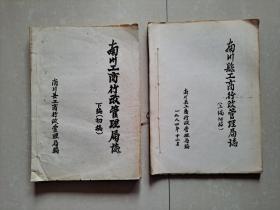 南川工商行政管理局志
下编(初稿)
南川县工商行政管理局编
南川縣工商行政管理局志
(上编初稿)
南川县工商行政管理局编
一九八四年十二月